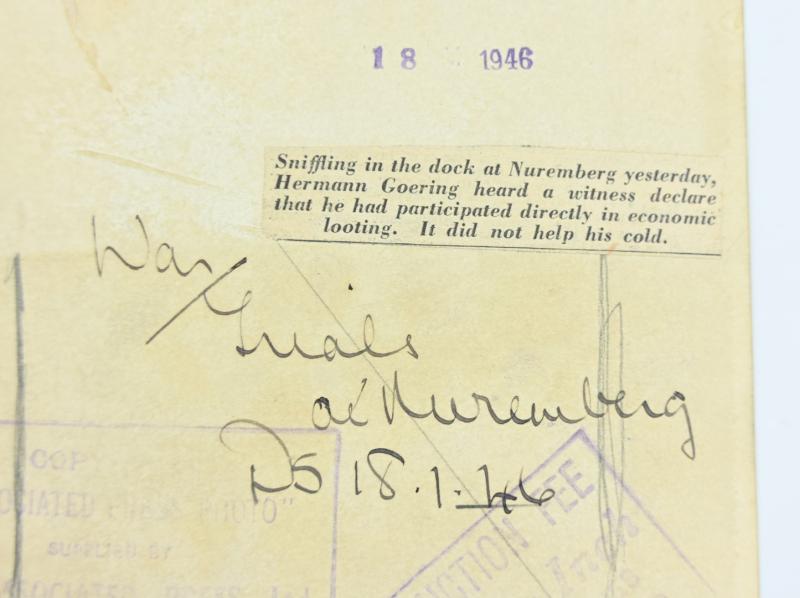 18 1946
Sniffling in the dock at Nuremberg yesterday,
Hermann Goering heard a witness declare
that he had participated directly in economic
looting. It did not help his cold.
War/
Trials
at Nuremberg
DS 18.1.46
COP
OCIATED PRESS PHOTO"
SUPPLIED BY
SSOCIATED PRESS Ltd
UCTION FEE